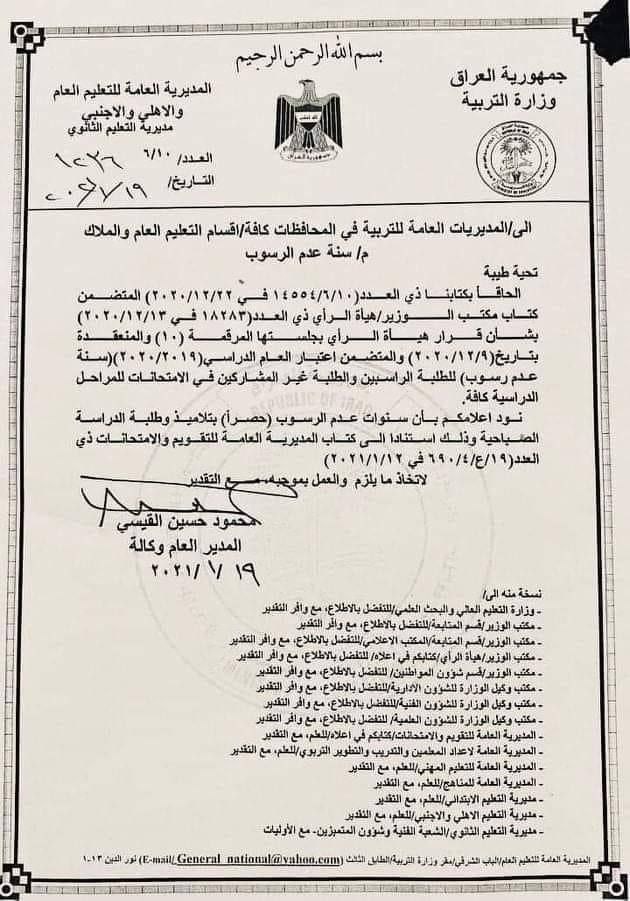 بسم الله الرحمن الرحيم
جمهورية العراق
وزارة التربية
المديرية العامة للتعليم العام
والاهلي والاجنبي
مديرية التعليم الثانوي
العدد/ ٦/١٠ ١٢٣٦
التاريخ/ ٢٠٢١/١/١٩
جمهورية العراق
الى/المديريات العامة للتربية في المحافظات كافة/اقسام التعليم العام والملاك
م/ سنة عدم الرسوب
تحية طيبة
الحاقاً بكتابنا ذي العدد(١٤٥٥٤/٦/١٠ في ٢٠٢٠/١٢/٢٢) المتضمن
كتاب مكتب الوزير/هيأة الرأي ذي العدد(١٨٢٨٣ في ٢٠٢٠/١٢/١٣)
بشأن قرار هيأة الرأي بجلستها المرقمة (١٠) والمنعقدة
بتاريخ(٢٠٢٠/١٢/٩) والمتضمن اعتبار العام الدراسي(٢٠٢٠/٢٠١٩)(سنة
عدم رسوب) للطلبة الراسبين والطلبة غير المشاركين في الامتحانات للمراحل
الدراسية كافة.
نود اعلامكم بأن سنوات عدم الرسوب (حصراً) بتلاميذ وطلبة الدراسة
الصباحية وذلك استنادا الى كتاب المديرية العامة للتقويم والامتحانات ذي
العدد(١٩/ع/٦٩٠/٤ في ٢٠٢١/١/١٢)
لاتخاذ ما يلزم والعمل بموجبه، مع التقدير
محمود حسين القيسي
المدير العام وكالة
٢٠٢١/١/١٩
نسخة منه الى/
- وزارة التعليم العالي والبحث العلمي/للتفضل بالاطلاع، مع وافر التقدير
- مكتب الوزير/قسم المتابعة/للتفضل بالاطلاع، مع وافر التقدير
- مكتب الوزير/قسم المتابعة/المكتب الاعلامي/للتفضل بالاطلاع، مع وافر التقدير
- مكتب الوزير/هيأة الرأي/كتابكم في اعلاه/ للتفضل بالاطلاع، مع وافر التقدير
- مكتب الوزير/قسم شؤون المواطنين/ للتفضل بالاطلاع، مع وافر التقدير
- مكتب وكيل الوزارة للشؤون الأدارية/للتفضل بالاطلاع، مع وافر التقدير
- مكتب وكيل الوزارة للشؤون الفنية/للتفضل بالاطلاع، مع وافر التقدير
- مكتب وكيل الوزارة للشؤون العلمية/ للتفضل بالاطلاع، مع وافر التقدير
- المديرية العامة للتقويم والامتحانات/كتابكم في اعلاه/للعلم، مع التقدير
- المديرية العامة لاعداد المعلمين والتدريب والتطوير التربوي/للعلم، مع التقدير
- المديرية العامة للتعليم المهني/للعلم، مع التقدير
- المديرية العامة للمناهج/للعلم، مع التقدير
- مديرية التعليم الابتدائي/للعلم، مع التقدير
- مديرية التعليم الاهلي والاجنبي/للعلم، مع التقدير
- مديرية التعليم الثانوي/الشعبة الفنية وشؤون المتميزين- مع الأوليات
المديرية العامة للتعليم العام/الباب الشرقي/مقر وزارة التربية/الطابق الثالث (E-mail/ General_national@yahoo.com) نور الدين ١٣-١